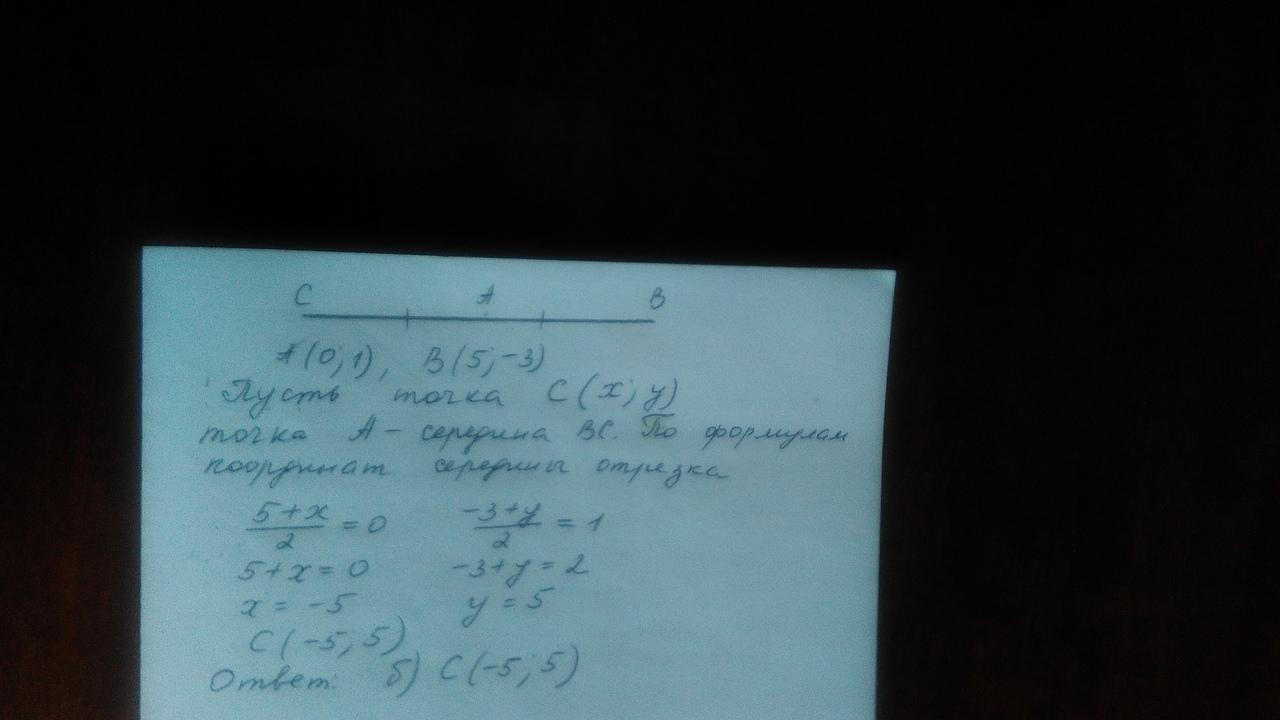 C A B
A(0;1), B(5;-3)
Пусть точка C(x;y)
точка A – середина BC. По формулам
координат середины отрезка
5+x/2 = 0 -3+y/2 = 1
5+x=0 -3+y=2
x = -5 y = 5
C(-5;5)
Ответ: б) C(-5;5)